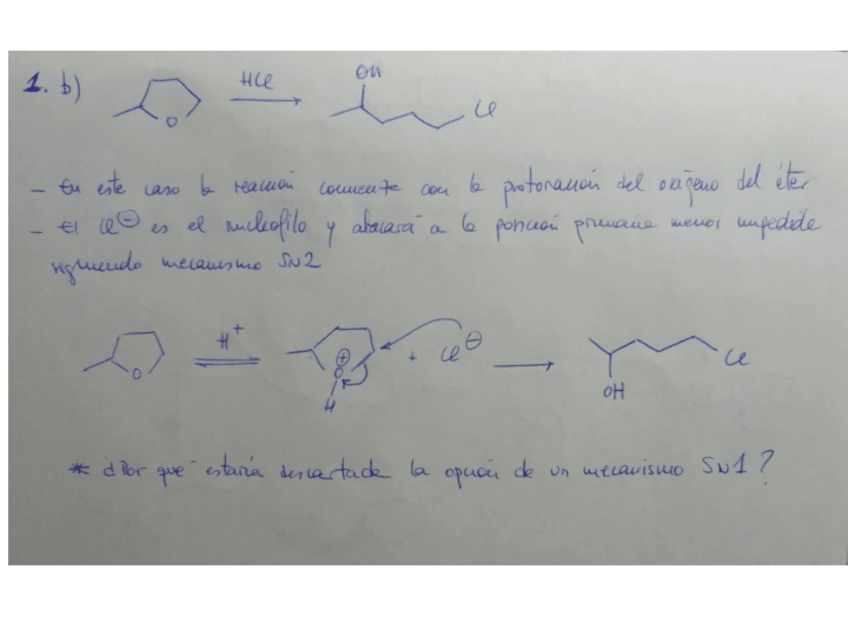 1. b)
HCl
OH
Cl
O
- En este caso la reacción comienza con la protonación del oxígeno del éter
- El Cl⊖ es el nucleófilo y atacará a la posición primaria menor impedida
siguiendo mecanismo SN2
H+
O
⊕
O
H
+ Cl⊖
Cl
OH
* ¿Por qué estaría descartada la opción de un mecanismo SN1?